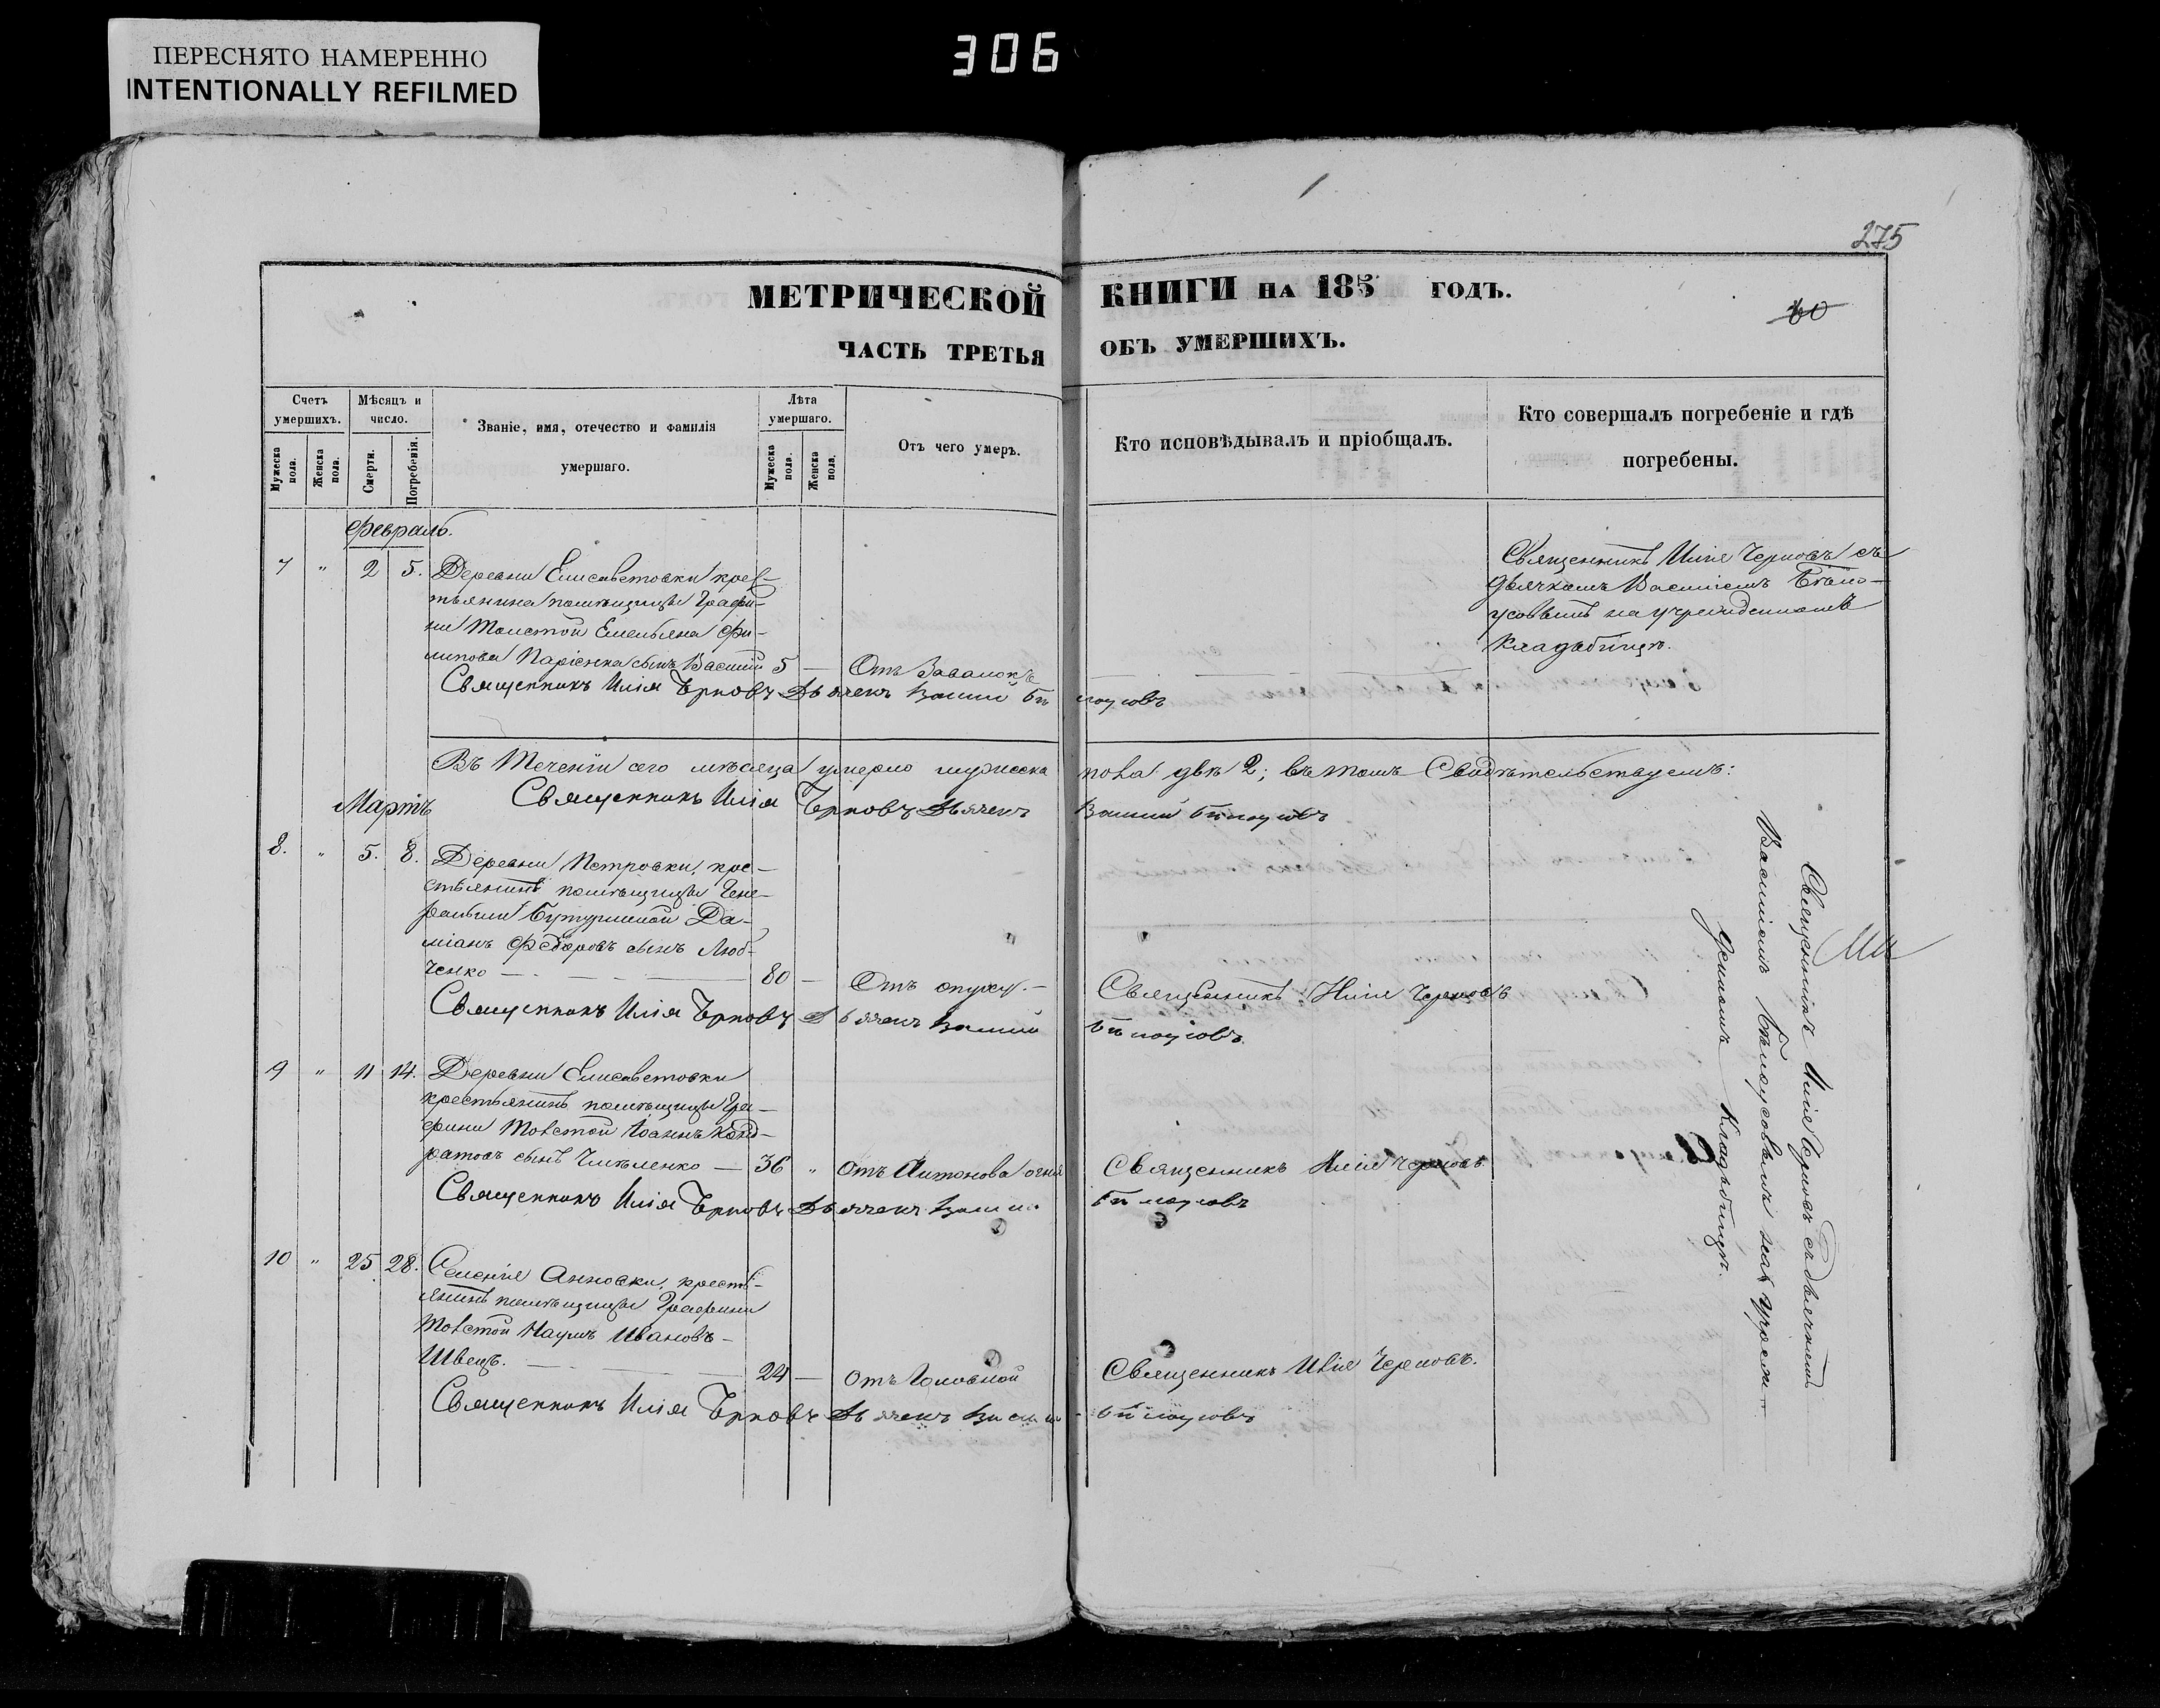 ПЕРЕСНЯТО НАМЕРЕННО
INTENTIONALLY REFILMED
306
275
МЕТРИЧЕСКОЙ КНИГИ НА 185 ГОДЪ.
60
ЧАСТЬ ТРЕТЬЯ ОБЪ УМЕРШИХЪ.
Счетъ умершихъ.
Мужеска пола.
Женска пола.
Мѣсяцъ и число.
Смерти.
Погребенія.
Званіе, имя, отечество и фамилія
умершаго.
Лѣта умершаго.
Мужеска пола.
Женска пола.
Отъ чего умеръ.
Кто исповѣдывалъ и пріобщалъ.
Кто совершалъ погребеніе и гдѣ
погребены.
Февраль.
7 " 2 5. Деревни Елисаветовки крес-
тьянина помѣщицы Графи-
ни Толстой Емельяна Фи-
липова сынъ Василій 5 — Отъ
Священникъ Илія Черновъ съ
дьячкомъ Василіемъ Бѣло-
усовымъ на учрежденномъ
кладбищѣ.
Священникъ Илія Черновъ Дьячекъ Василій Бѣлоусовъ
Въ теченіи сего мѣсяца умерло мужеска пола двѣ 2; въ томъ Свидѣтельствуемъ:
Священникъ Илія Черновъ Дьячекъ Василій Бѣлоусовъ
Мартъ
8. " 5. 8. Деревни Петровки, кре-
стьянинъ помѣщицы Гене-
ральши Бутурлиной Да-
міанъ Федоровъ сынъ Люб-
ченко — 80 — Отъ опуху. — Священникъ Илія Черновъ
Священникъ Илія Черновъ Дьячекъ Василій Бѣлоусовъ
9 " 11 14. Деревни Елисаветовки
крестьянинъ помѣщицы Гра-
фини Толстой Іоаннъ Конд-
ратовъ сынъ — 36 " Отъ Антонова огня Священникъ Илія Черновъ.
Священникъ Илія Черновъ Дьячекъ Василій Бѣлоусовъ
10 " 25 28. Селенія Анновки, кресть-
янинъ помѣщицы Графини
Толстой Наумъ Ивановъ
Швецъ. — 24 — Отъ Головной Священникъ Илія Черновъ.
Священникъ Илія Черновъ Дьячекъ Василій Бѣлоусовъ
Священникъ Илія Черновъ съ дьячкомъ
Василіемъ Бѣлоусовымъ на учреж-
денномъ кладбищѣ.